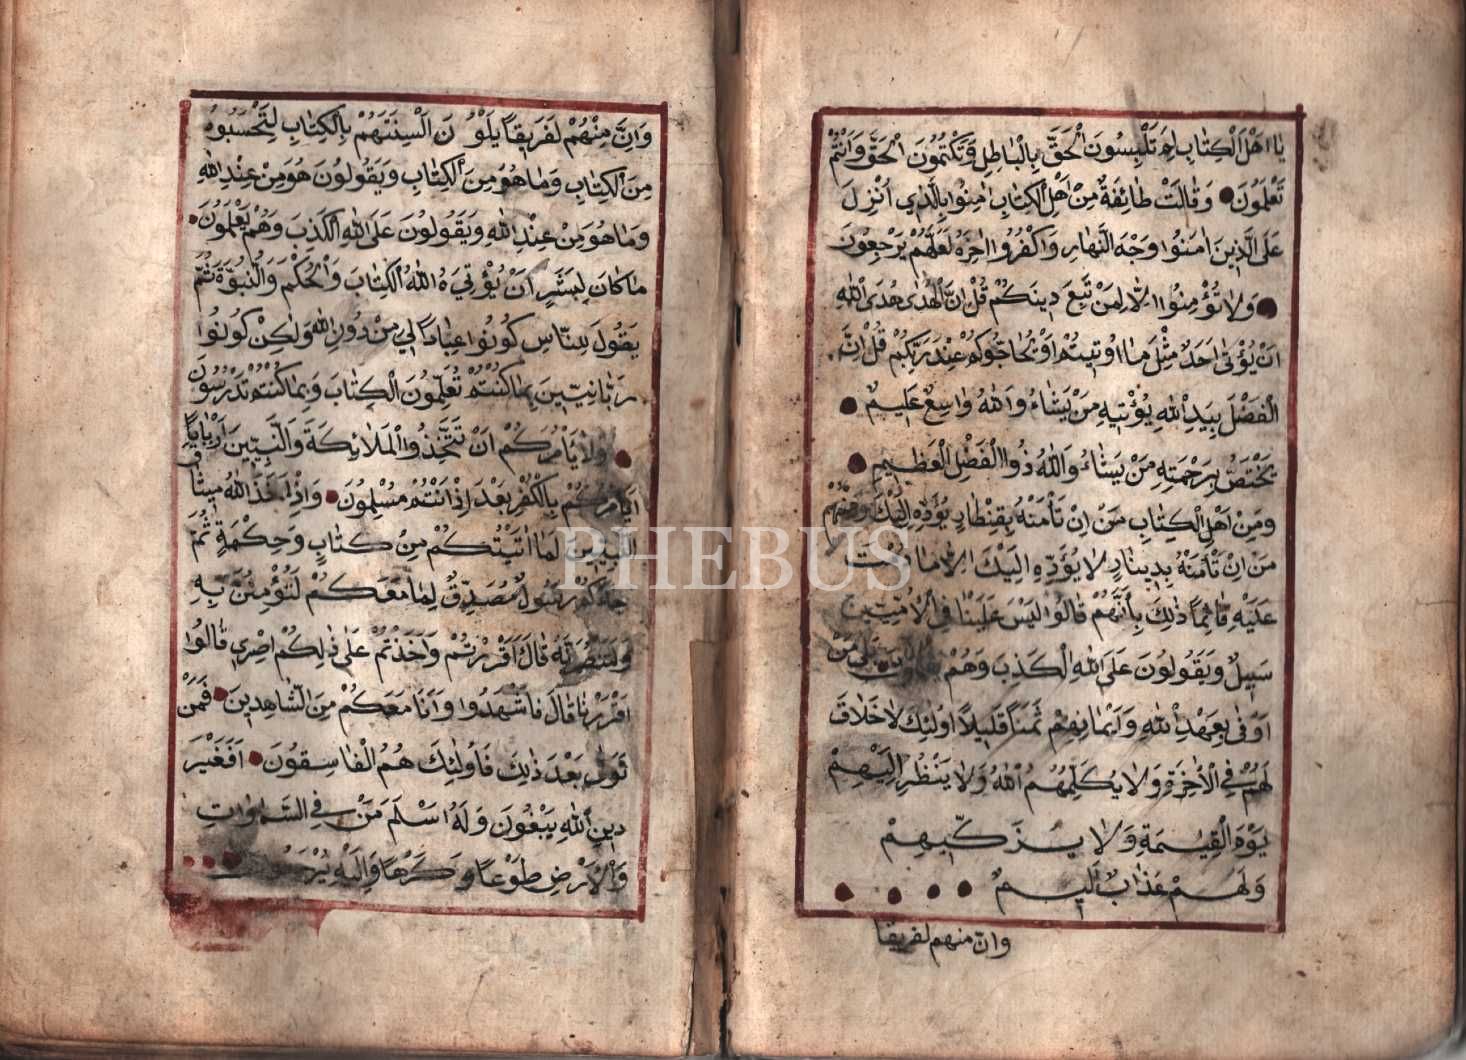 يا اهل الكتاب لم تلبسون الحق بالباطل وتكتمون الحق وانتم
تعلمون وقالت طائفة من اهل الكتاب امنوا بالذي انزل
على الذين امنوا وجه النهار واكفروا اخره لعلهم يرجعون
ولا تؤمنوا الا لمن تبع دينكم قل ان الهدى هدى الله
ان يؤتى احد مثل ما اوتيتم او يحاجوكم عند ربكم قل ان
الفضل بيد الله يؤتيه من يشاء والله واسع عليم
يختص برحمته من يشاء والله ذوا الفضل العظيم
ومن اهل الكتاب من ان تأمنه بقنطار يؤده اليك ومنهم
من ان تأمنه بدينار لا يؤده اليك الا ما دمت
عليه قائما ذلك بأنهم قالوا ليس علينا في الاميين
سبيل ويقولون على الله الكذب وهم يعلمون بلى من
اوفى بعهد الله وايمانهم ثمنا قليلا اولئك لا خلاق
لهم في الاخرة ولا يكلمهم الله ولا ينظر اليهم
يوم القيمة ولا يزكيهم
ولهم عذاب اليم
وان منهم لفريقا
وان منهم لفريقا يلون السنتهم بالكتاب لتحسبوه
من الكتاب وما هو من الكتاب ويقولون هو من عند الله
وما هو من عند الله ويقولون على الله الكذب وهم يعلمون
ما كان لبشر ان يؤتيه الله الكتاب والحكم والنبوة ثم
يقول للناس كونوا عبادا لي من دون الله ولكن كونوا
ربانيين بما كنتم تعلمون الكتاب وبما كنتم تدرسون
ولا يأمركم ان تتخذوا الملائكة والنبيين اربابا
ايامركم بالكفر بعد اذ انتم مسلمون واذ اخذ الله ميثاق
النبيين لما اتيتكم من كتاب وحكمة ثم
جاءكم رسول مصدق لما معكم لتؤمنن به
ولتنصرنه قال أقررتم واخذتم على ذلكم اصري قالوا
اقررنا قال فاشهدوا وانا معكم من الشاهدين فمن
تولى بعد ذلك فأولئك هم الفاسقون افغير
دين الله يبغون وله اسلم من في السموات
والارض طوعا وكرها واليه يرجعون
PHEBUS